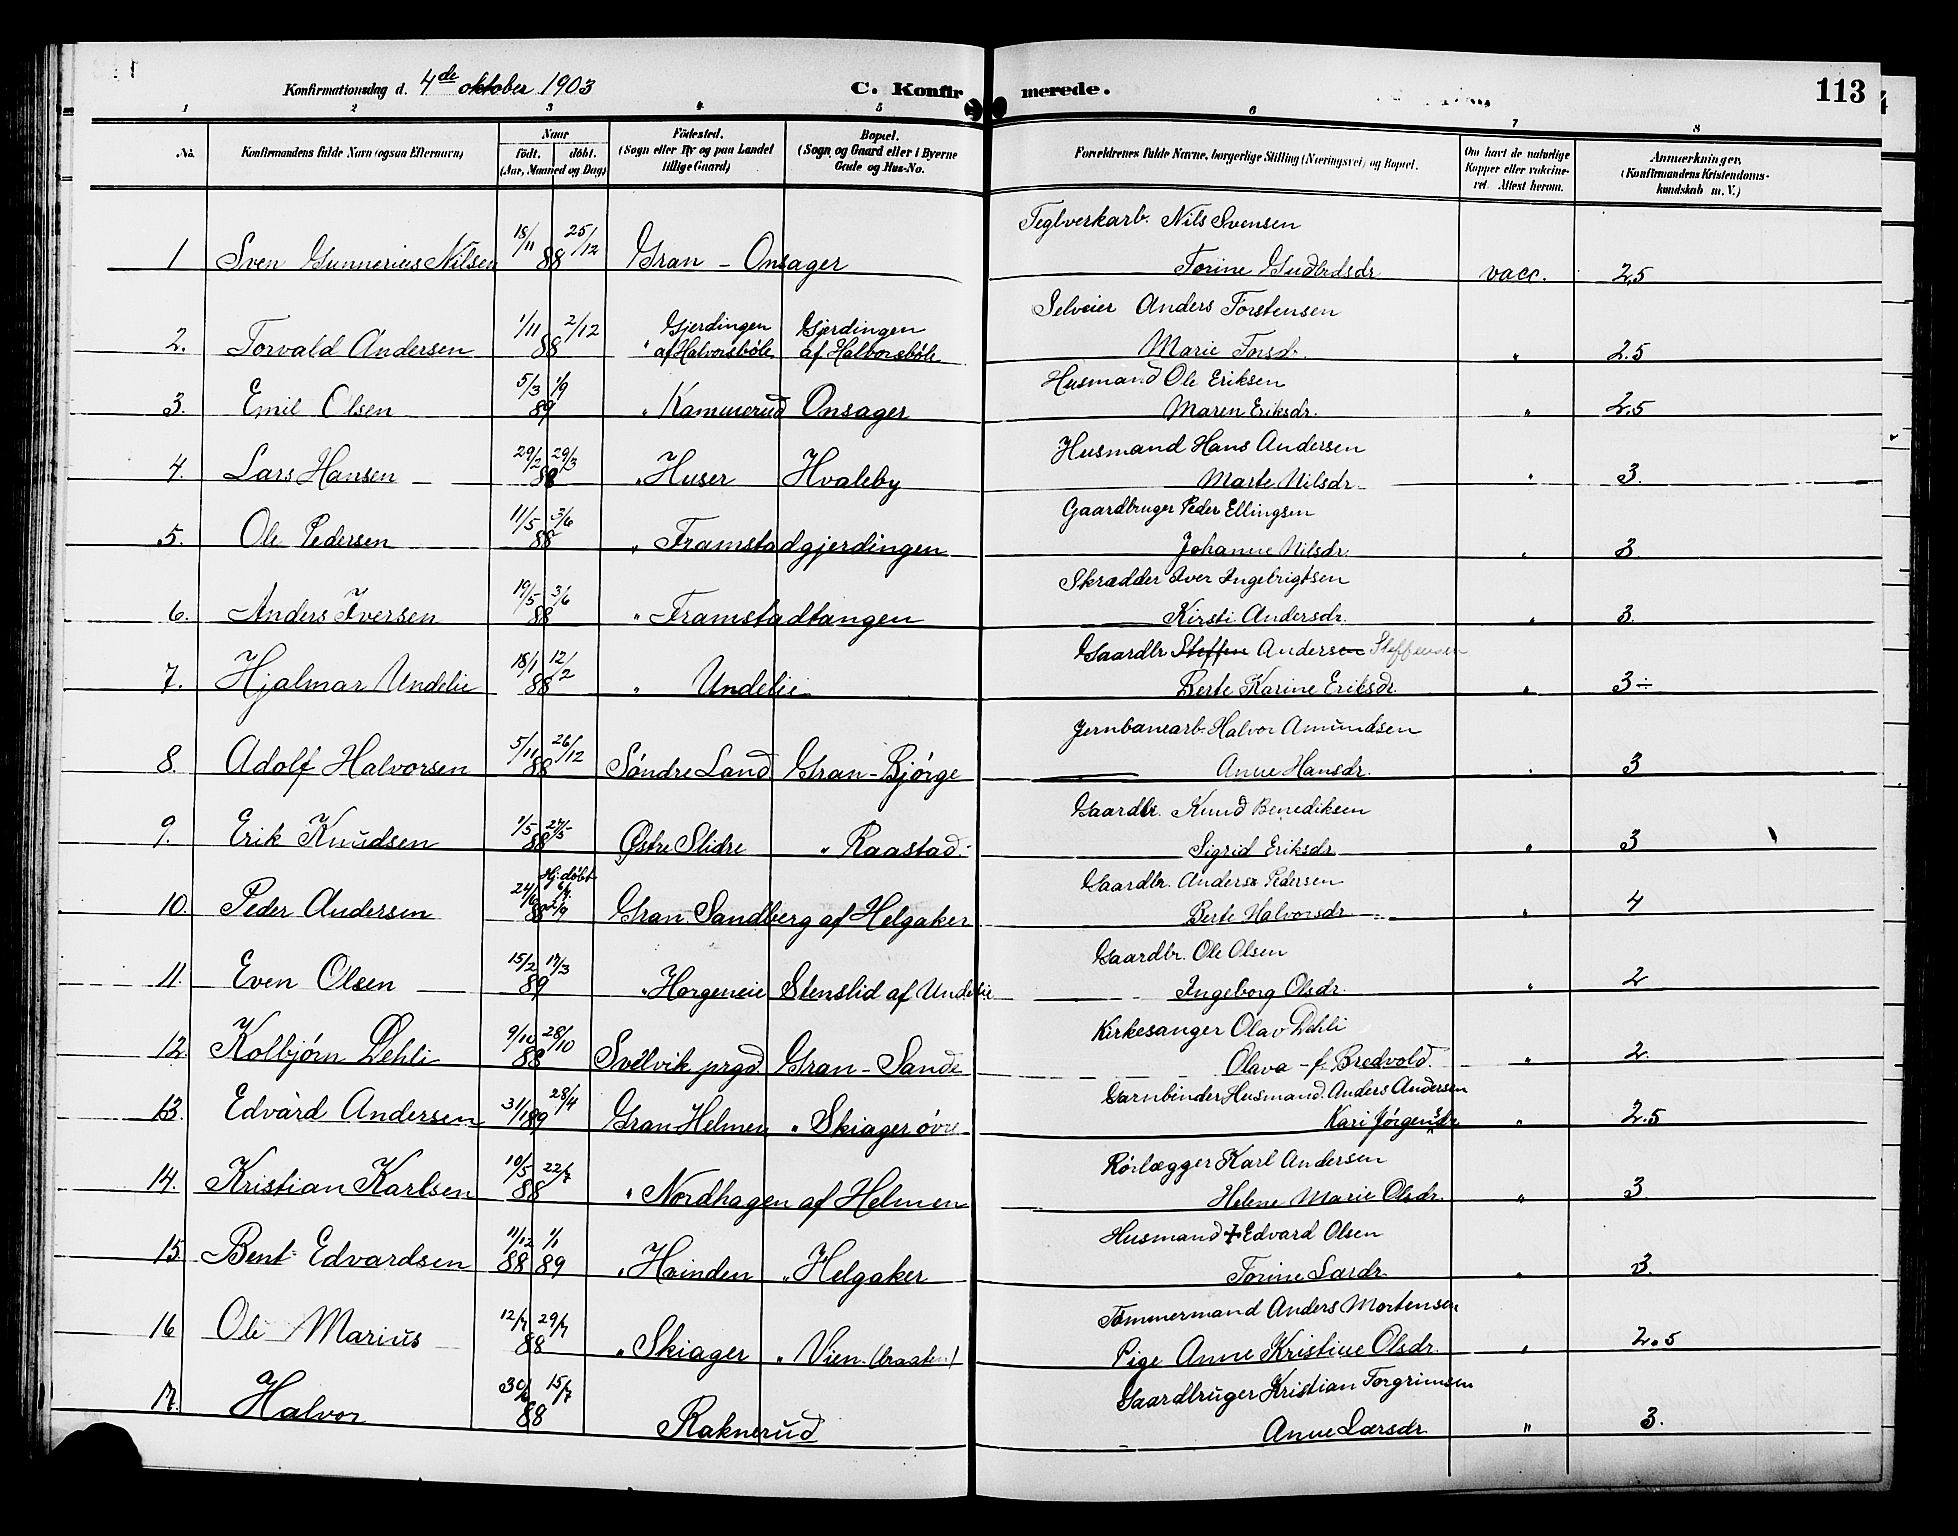 Konfirmationsdag d. 4de oktober 1903 C. Konfirmerede. 113
1 2 3 4 5 6 7 8
No. Konfirmandens fulde Navn (ogsaa Efternavn) Naar født. døbt. (Aar, Maaned og Dag) Fødested. (Sogn eller By og paa Landet tillige Gaard) Bopæl. (Sogn og Gaard eller i Byerne Gade og Hus-No. Forældrenes fulde Navne, borgerlige Stilling (Næringsvei) og Bopæl. Om havt de naturlige Kopper eller vakcineret. Attest herom. Anmærkninger, (Konfirmandens Kristendomskundskab m. V.)
Teglverkarb. Nils Svensen
1 Sven Gunnerius Nilsen 18/11 88 25/12 Gran - Onsager Torine Gudbrdsdr vacc. 2,5
Selveier Anders Torstensen
2. Torvald Andersen 1/11 88 2/12 " Gjerdingen af Halvorsbøle Gjerdingen af Halvorsbøle Marie Torsd. " 2.5
Husmand Ole Eriksen
3. Emil Olsen 5/3 89 1/9 " Kammerud Onsager Maren Eriksdr. " 2.5
Husmand Hans Andersen
4. Lars Hansen 29/2 88 29/3 " Huser Hvaleby Marte Nilsdr. " 3.
Gaardbruger Peder Ellingsen
5. Ole Pedersen 11/5 88 3/6 " Framstadgjerdingen Johanne Nilsdr. " 3.
Skrædder Iver Ingebrigtsen
6. Anders Iversen 19/5 88 3/6 " Framstadtangen Kirsti Andersdr. " 3.
Gaardbr. Steffen Andersen Steffensen
7. Hjalmar Undelie 18/1 88 12/2 " Undelie Berte Karine Eriksdr. " 3÷
Jernbanearb. Halvor Amundsen
8. Adolf Halvorsen 5/11 88 26/12 Søndre Land Gran - Bjørge Anne Hansdr. " 3
Gaardbr. Knud Benediksen
9. Erik Knudsen 1/5 88 27/5 Østre Slidre " Raastad. Sigrid Eriksdr " 3
Gaardbr. Anders Pedersen
10. Peder Andersen 24/6 88 Hj. døbt Gran Sandberg af Helgaker Berte Halvorsdr. " 4
Gaardbr. Ole Olsen
11. Even Olsen 15/2 89 17/3 " Horgeneie Stenslid af Undelie Ingeborg Olsdr. " 2
Kirkesanger Olav Dehli
12. Kolbjørn Dehli 9/10 88 28/10 Svelvik prgd. Gran - Sande Olava - f. Bredvold. " 2.
Garnbinder Husmand. Anders Andersen
13. Edvard Andersen 31/1 89 28/4 Gran Helmen " Skiager øvre Kari Jørgensdr " 2.5
Rørlægger Karl Andersen
14. Kristian Karlsen 10/5 88 22/7 " Nordhagen af Helmen Helene Marie Olsdr. " 3
Husmand + Edvard Olsen
15. Bent Edvardsen 11/12 88 1/1 89 " Hoinden " Helgaker Torine Larsdr. " 3.
Tømmermand Anders Mortensen
16 Ole Marius 12/7 88 29/7 " Skiager " Vien (braaten) Pige Anne Kristine Olsdr. " 2.5
Gaardbruger Kristian Torgrimsen
17. Halvor 30/6 88 15/7 Raknerud Anne Larsdr. " 3.